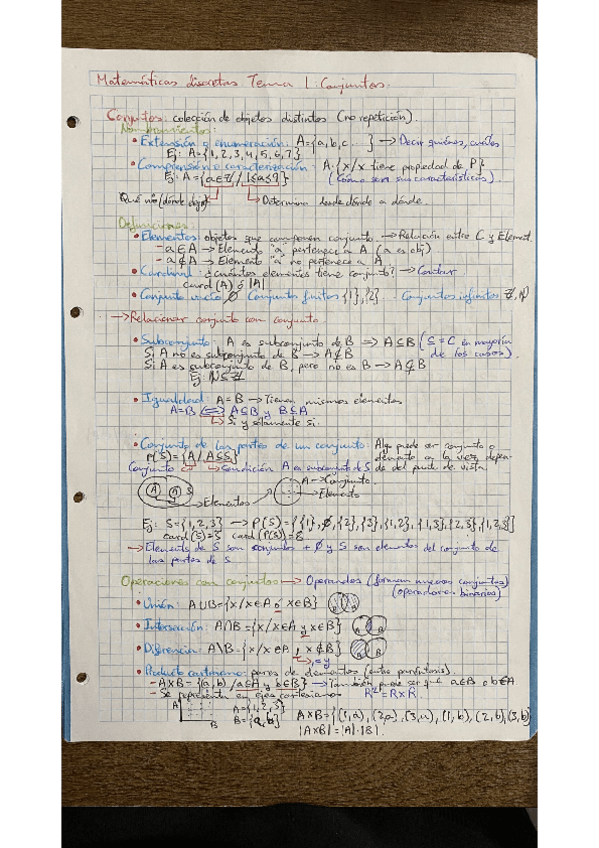 Matemáticas discretas. Tema 1: Conjuntos.
Conjuntos: colección de objetos distintos (no repetición).
Nombramientos:
• Extensión o enumeración: A={a,b,c ...} → Decir quiénes, cuáles
Ej: A={1,2,3,4,5,6,7}
• Comprensión o caracterización: A={x/x tiene propiedad de P}
Ej: A={a∈Z / 1≤a≤7} (Cómo son sus características).
Qué nº (dónde dejo) → Determina desde dónde a dónde.
Definiciones:
• Elementos: objetos que componen conjunto. → Relación entre C y Element.
- a∈A → Elemento "a" pertenece a A (a es obj)
- a∉A → Elemento "a" no pertenece a A
• Cardinal: ¿cuántos elementos tiene conjunto? → Contar
card(A) ó |A|
• Conjunto vacío ∅ Conjunto finitos {1},{2} Conjuntos infinitos Z, N
→ Relacionar conjunto con conjunto.
• Subconjunto: A es subconjunto de B ⇒ A⊆B (S=C en mayoría
Si A no es subconjunto de B → A⊈B de los casos).
Si A es subconjunto de B, pero no es B → A⊊B
Ej: N⊆Z
• Igualdad: A=B → Tienen mismos elementos
A=B ⟺ A⊆B y B⊆A
→ Si y solamente si.
• Conjunto de las partes de un conjunto: Algo puede ser conjunto o
P(S)={A / A⊆S} elemento a la vez, depen-
Conjunto Condición A es subconjunto de S de del punto de vista.
A A S A → Conjunto.
→ Elementos → Elemento
Ej: S={1,2,3} → P(S)={{1},∅,{2},{3},{1,2},{1,3},{2,3},{1,2,3}}
card(S)=3 card(P(S))=8
→ Elements de S son conjuntos + ∅ y S son elementos del conjunto de
las partes de S.
Operaciones con conjuntos → Operandos (forman nuevos conjuntos)
(operadores binarios)
• Unión: A∪B={x/x∈A ó x∈B} A B
• Intersección: A∩B={x/x∈A y x∈B} A B
• Diferencia: A\B={x/x∈A, x∉B} A B
→ es y
• Producto cartesiano: pares de elementos (entre paréntesis).
- A×B={(a,b) / a∈A y b∈B} → También puede ser a∈B o b∈A
- Se representa en ejes cartesianos R²=R×R.
A A={1,2,3} A×B={(1,a),(2,a),(3,a),(1,b),(2,b),(3,b)}
B B={a,b} |A×B|=|A|·|B|.